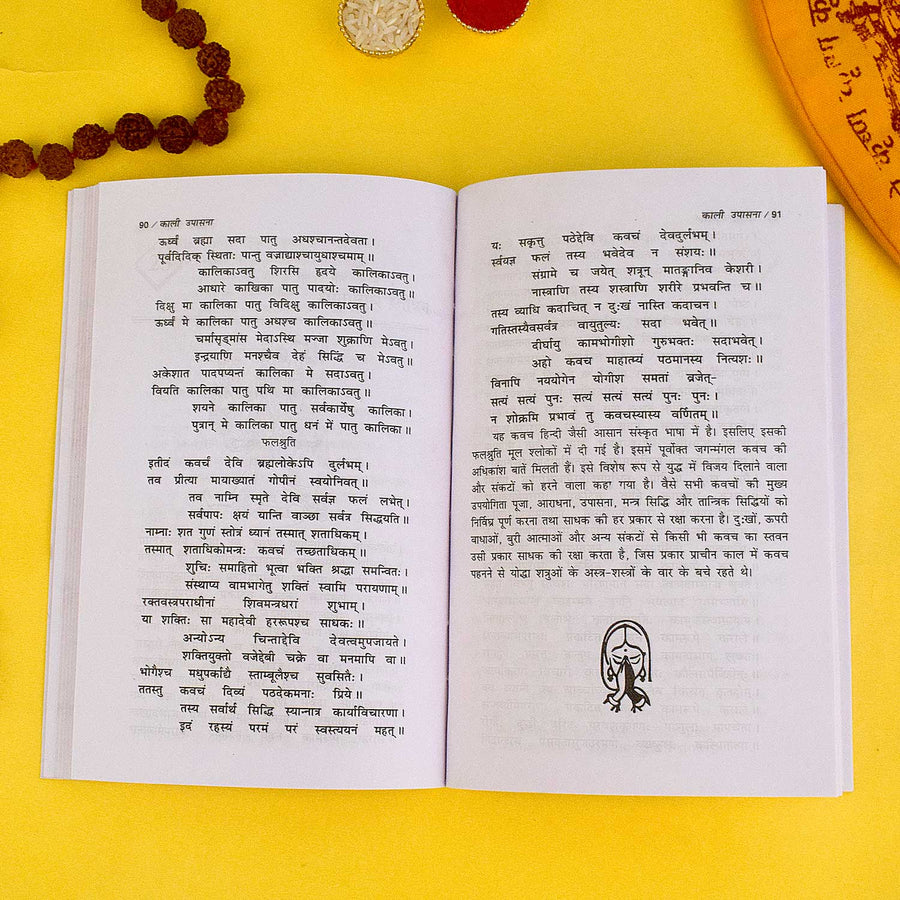 90 / काली उपासना
ऊर्ध्वं ब्रह्मा सदा पातु अधश्चानन्तदेवता।
पूर्वदिदिक् स्थिताः पान्तु वज्राद्याश्चायुधाश्चमाम्॥
कालिकाऽवतु शिरसि हृदये कालिकाऽवतु।
आधारे काखिका पातु पादयोः कालिकाऽवतु॥
दिक्षु मा कालिका पातु विदिक्षु कालिकाऽवतु।
ऊर्ध्वं मे कालिका पातु अधश्च कालिकाऽवतु॥
चर्मासृङ्मांस मेदाऽस्थि मज्जा शुक्राणि मेऽवतु।
इन्द्रयाणि मनश्चैव देहं सिद्धि च मेऽवतु॥
अकेशात पादपप्यनं कालिका मे सदाऽवतु।
वियति कालिका पातु पथि मा कालिकाऽवतु॥
शयने कालिका पातु सर्वकार्येषु कालिका।
पुत्रान् मे कालिका पातु धनं में पातु कालिका॥
फलश्रुति
इतीदं कवचं देवि ब्रह्मलोकेऽपि दुर्लभम्।
तव प्रीत्या मायाख्यातं गोपीनं स्वयोनिवत्॥
तव नाम्नि स्मृते देवि सर्वज्ञ फलं लभेत्।
सर्वपापः क्षयं यान्ति वाञ्छा सर्वत्र सिद्धयति॥
नाम्नाः शत गुणं स्तोत्रं ध्यानं तस्मात् शताधिकम्।
तस्मात् शताधिकोमन्त्रः कवचं तच्छताधिकम्॥
शुचिः समाहितो भूत्वा भक्ति श्रद्धा समन्वितः।
संस्थाप्य वामभागेतु शक्तिं स्वामि परायणाम्॥
रक्तवस्त्रपराधीनां शिवमन्त्रधरां शुभाम्।
या शक्तिः सा महादेवी हररूपश्च साधकः॥
अन्योऽन्य चिन्ताद्देवि देवत्वमुपजायते।
शक्तियुक्तो वजेद्देबी चक्रे वा मनमापि वा॥
भोगैश्च मधुपर्काद्यै स्ताम्बूलैश्च सुवसितैः।
ततस्तु कवचं दिव्यं पठदेकमनाः प्रिये॥
तस्य सर्वार्थ सिद्धि स्यान्नात्र कार्याविचारणा।
इदं रहस्यं परमं परं स्वस्त्ययनं महत्॥
काली उपासना / 91
यः सकृत्तु पठेद्देवि कवचं देवदुर्लभम्।
र्स्वयज्ञ फलं तस्य भवेदेव न संशयः॥
संग्रामे च जयेत् शत्रून् मातङ्गानिव केशरी।
नास्त्राणि तस्य शस्त्राणि शरीरे प्रभवन्ति च॥
तस्य व्याधि कदाचित् न दुःखं नास्ति कदाचन।
गतिस्तस्यैवसर्वत्र वायुतुल्यः सदा भवेत्॥
दीर्घायु कामभोगीशो गुरुभक्तः सदाभवेत्।
अहो कवच माहात्म्यं पठमानस्य नित्यशः॥
विनापि नययोगेन योगीश समतां व्रजेत्-
सत्यं सत्यं पुनः सत्यं सत्यं सत्यं पुनः पुनः।
न शोक्रमि प्रभावं तु कवचस्यास्य वर्णितम्॥
यह कवच हिन्दी जैसी आसान संस्कृत भाषा में है। इसलिए इसकी
फलश्रुति मूल श्लोकों में दी गई है। इसमें पूर्वोक्त जगन्मंगल कवच की
अधिकांश बातें मिलती हैं। इसे विशेष रूप से युद्ध में विजय दिलाने वाला
और संकटों को हरने वाला कहा गया है। वैसे सभी कवचों की मुख्य
उपयोगिता पूजा, आराधना, उपासना, मन्त्र सिद्धि और तान्त्रिक सिद्धियों को
निर्विघ्न पूर्ण करना तथा साधक की हर प्रकार से रक्षा करना है। दुःखों, ऊपरी
बाधाओं, बुरी आत्माओं और अन्य संकटों से किसी भी कवच का स्तवन
उसी प्रकार साधक की रक्षा करता है, जिस प्रकार प्राचीन काल में कवच
पहनने से योद्धा शत्रुओं के अस्त्र-शस्त्रों के वार के बचे रहते थे।